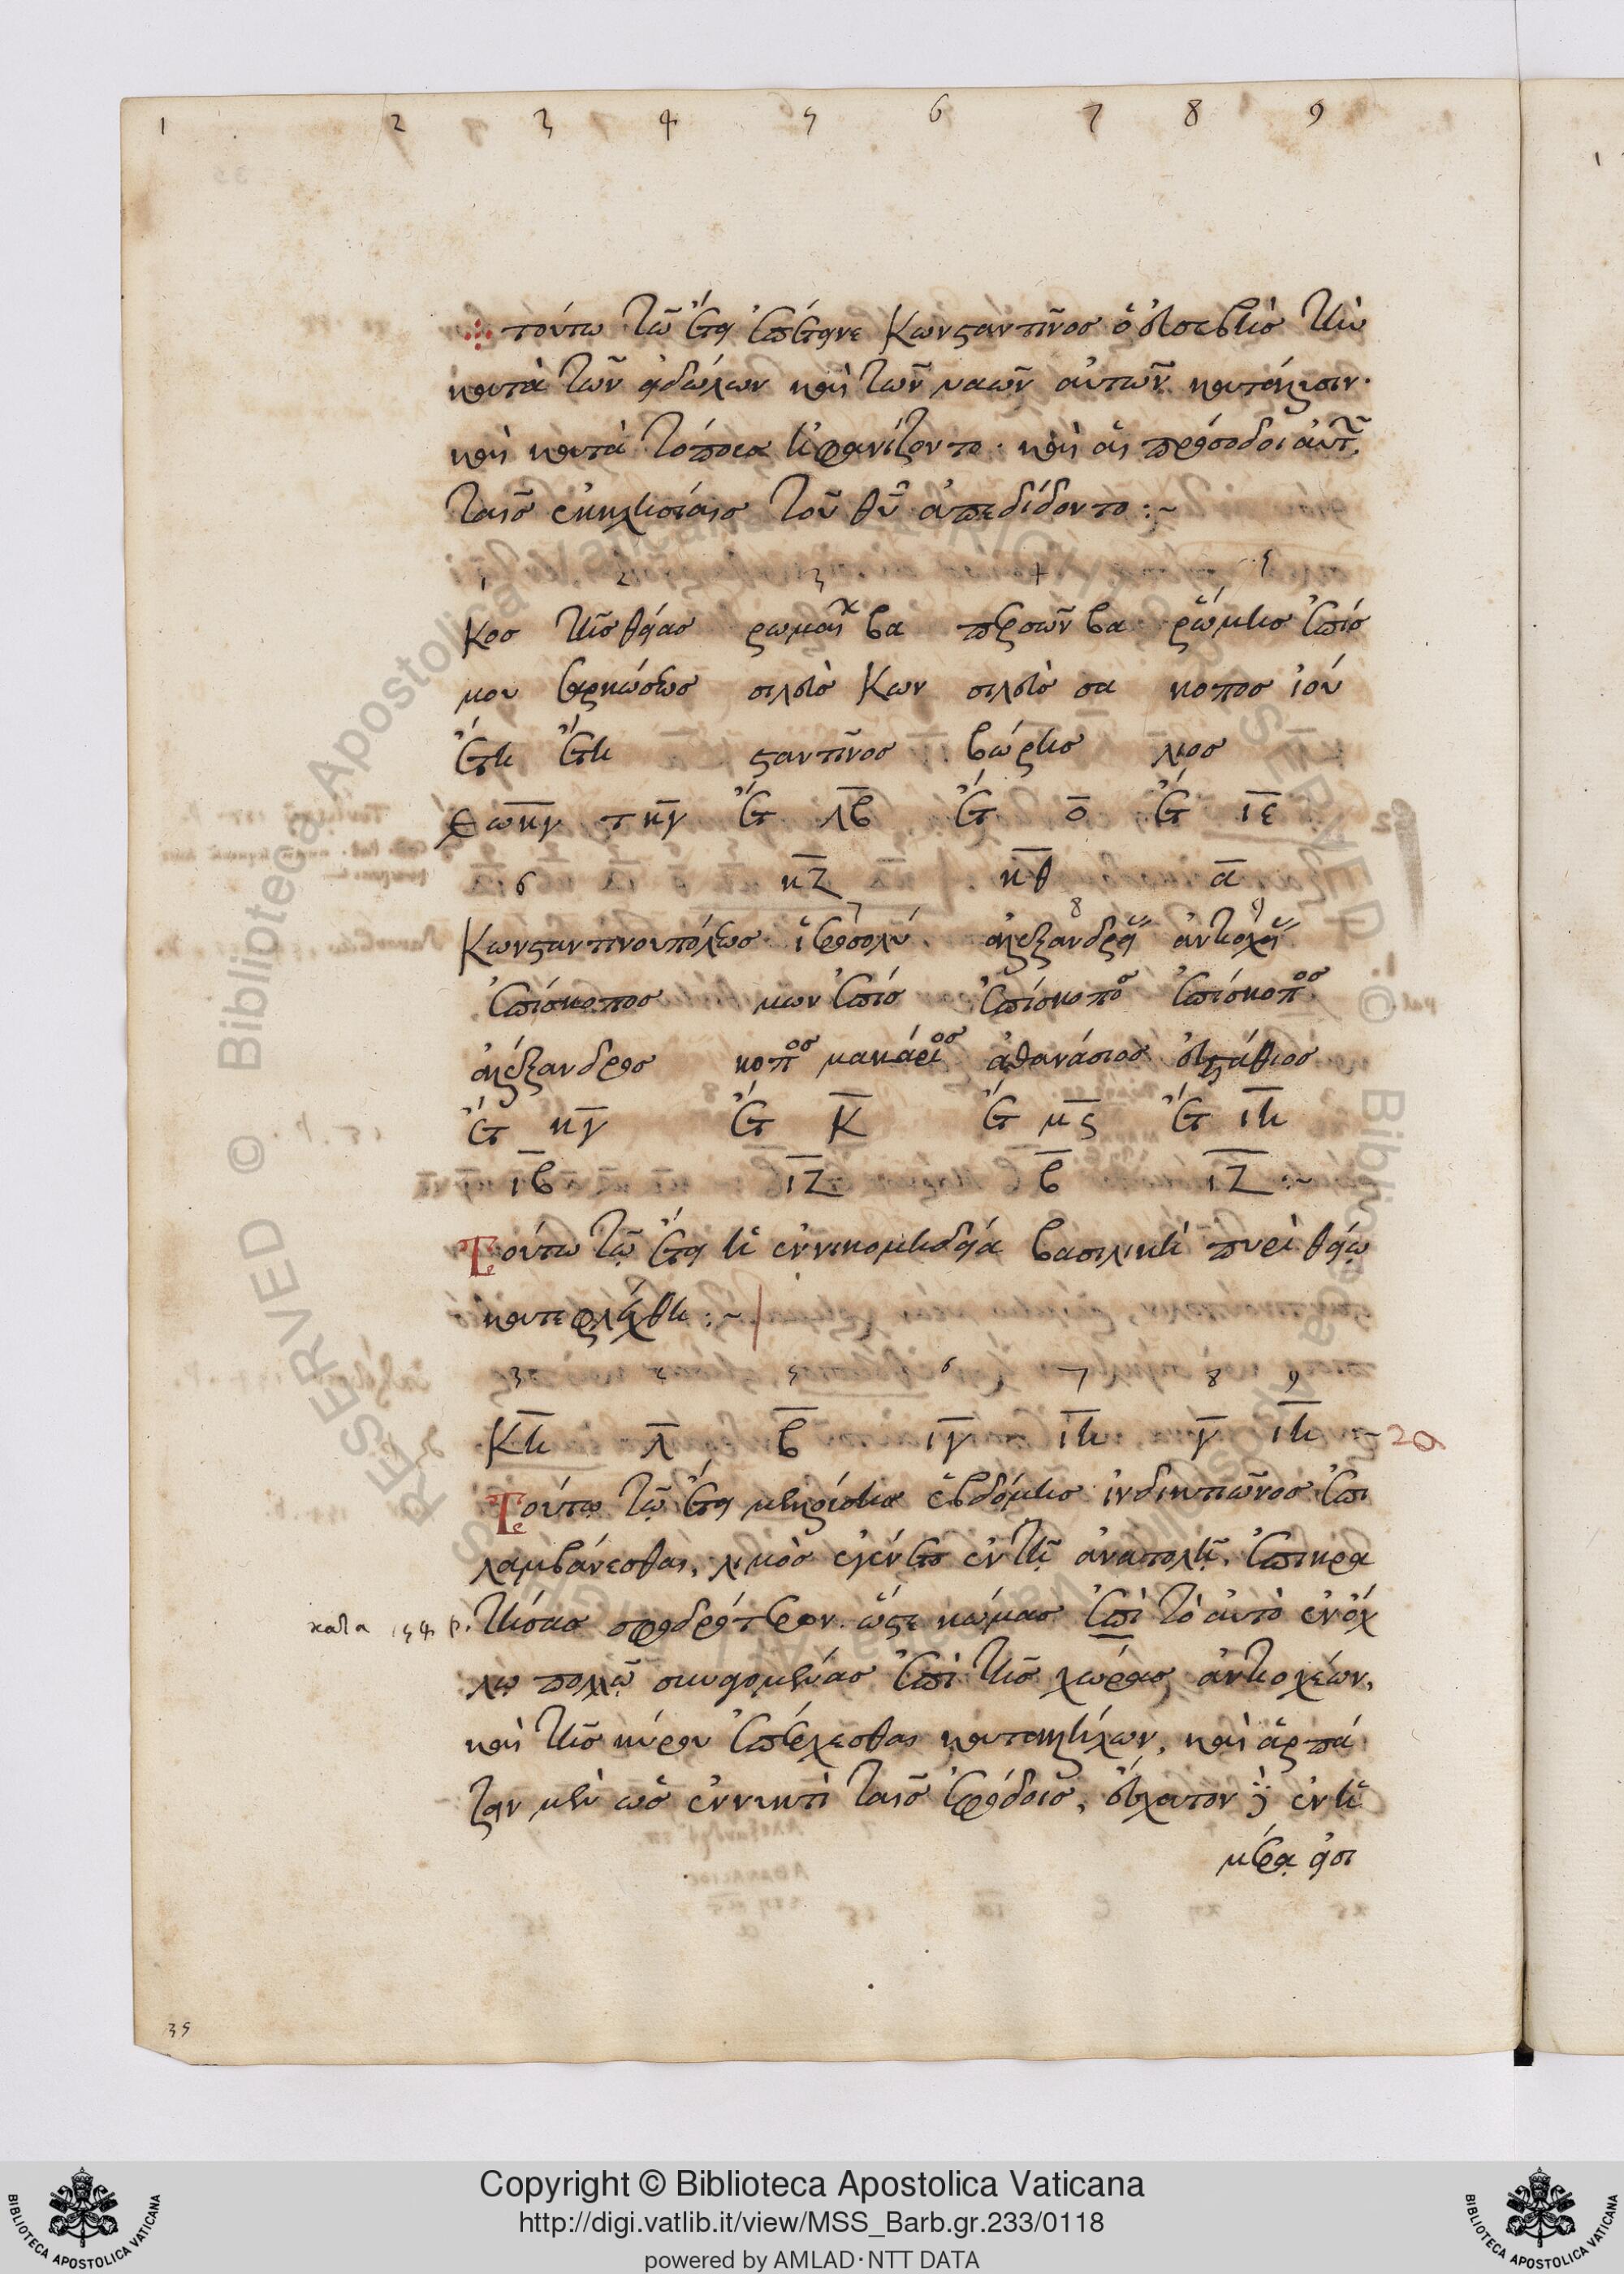 1 2 3 4 5 6 7 8 9
τούτω τῶ ἔτει ἐπέτεινε Κωνσταντῖνος ὁ εὐσεβὴς τὴν
κατὰ τῶν εἰδώλων καὶ τῶν ναῶν αὐτῶν κατάλυσιν.
καὶ κατὰ τόπους ἠφανίζοντο. καὶ αἱ πρόσοδοι αὐτ
ταῖς ἐκκλησίαις τοῦ θῦ ἀπεδίδοντο :~
1 2 3 4 5
Κοσ τῆς θείας ρωμαι βα περσῶν βα ρώμης ἐπίσ
μου σαρκώσεως σιλεὺς Κων σιλεὺς σα κοπος ἰού
ἔτη ἔτη σταντῖνος βώρης λιος
εωκγ τκγ ἔτ λβ ἔτ ο ἔτ ιε
6 κζ κθ α
7 8 9
Κωνσταντινουπόλεως ἱεροσολύ ἀλεξανδρεί ἀντιοχεί
ἐπίσκοπος μων ἐπίσ ἐπίσκοπο ἐπίσκοπος
ἀλέξανδρος κοπος μακάριος ἀθανάσιος εὐστάθιος
ἔτ κγ ἔτ Κ ἔτ μς ἔτ ιη
ιβ ιζ β ιζ :~
Τούτω τῷ ἔτει ἡ ἐν νικομηδείᾳ βασιλικὴ πυρὶ θείῳ
κατεφλέχθη :~
3 4 5 6 7 8 9
Κη λ β ιγ ιη γ ιη ~ 29
Τούτῳ τῷ ἔτει μελλούσης ἑβδόμης ἰνδικτιῶνος ἐπι
λαμβάνεσθαι, λιμὸς ἐγένετο ἐν τῇ ἀνατολῇ, ἐπικρα
τήσας σφοδρότερον. ὥστε κώμας ἐπὶ τὸ αὐτὸ ἐν ὄχ
λῳ πολλῷ συναγομένας ἐπὶ τῆς χώρας ἀντιοχέων,
καὶ τῆς κύρου ἐπέρχεσθαι κατ ἀλλήλων, καὶ ἁρπά
ζειν μὲν ὡς ἐν νυκτὶ ταῖς ἐφόδοις, ἔσχατον δὲ ἐν ἡ
μέρᾳ εἰσι
35
Copyright © Biblioteca Apostolica Vaticana
http://digi.vatlib.it/view/MSS_Barb.gr.233/0118
powered by AMLAD·NTT DATA
BIBLIOTECA APOSTOLICA VATICANA
BIBLIOTECA APOSTOLICA VATICANA